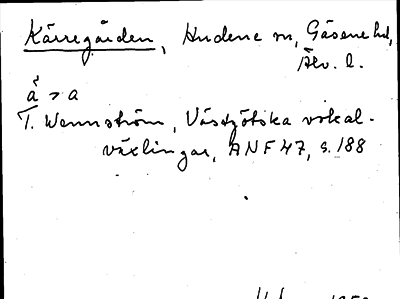 Kärregården, Hudene sn, Gäsene hd,
Älv. l.
å > a
T. Wennström, Västgötska vokal-
växlingar, ANF 47, s. 188